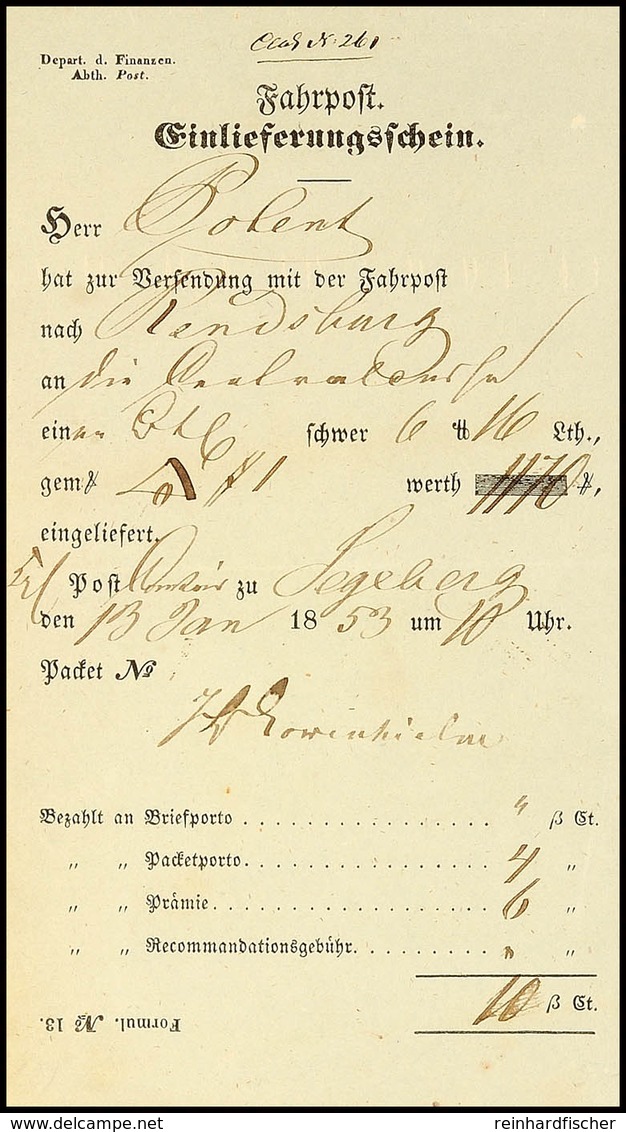 Depart. d. Finanzen.
Abth. Post.
Fahrpost.
Einlieferungsschein.
Herr Polent
hat zur Versendung mit der Fahrpost
nach Rendsburg
an die
ein schwer 6 ℔ 16 Lth.,
gem
werth 1170 ,
eingeliefert.
Post zu Segeberg
den 13 Jan 1853 um 10 Uhr.
Packet №
Bezahlt an Briefporto . . . . . . . . . . . . . . . . . . " ß Ct.
" " Packetporto. . . . . . . . . . . . . . . . . . 4 "
" " Prämie. . . . . . . . . . . . . . . . . . . . . 6 "
" " Recommandationsgebühr. . . . . . . . . " "
10 ß Ct.
Formul. № 13.
reinhardfischer